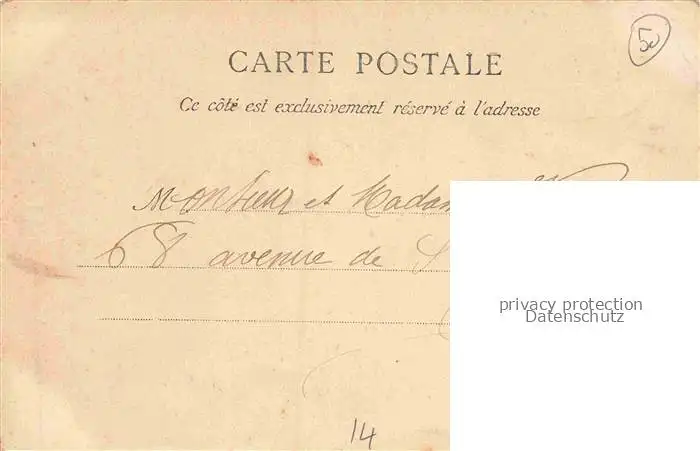 50
CARTE POSTALE
Ce côté est exclusivement réservé à l'adresse
Monsieur et Madam
68 avenue de S
privacy protection
Datenschutz
14